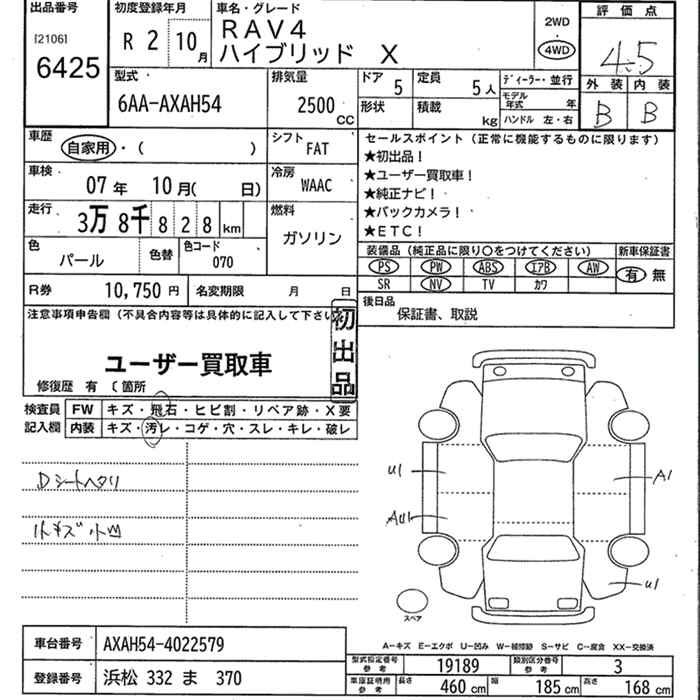 出品番号
[2106]
6425
初度登録年月
R 2 10月
車名・グレード
RAV4
ハイブリッド X
2WD
4WD
評価点
4.5
外装 内装
B B
型式
6AA-AXAH54
排気量
2500 CC
ドア 5
形状
定員 5人
積載 kg
ディーラー・並行
モデル年式 年
ハンドル 左・右
車歴
自家用・( )
シフト FAT
車検
07年 10月( 日)
冷房 WAAC
走行
3万8千828km
燃料
ガソリン
色
パール
色替
色コード
070
R券 10,750円
名変期限 月 日
セールスポイント(正常に機能するものに限ります)
★初出品!
★ユーザー買取車!
★純正ナビ!
★バックカメラ!
★ETC!
装備品(純正品に限り〇をつけてください)
新車保証書
PS PW ABS エアB AW
SR NV TV カワ
有 無
後日品
保証書、取説
注意事項申告欄(不具合内容等は具体的に記入して下さい
初出品
ユーザー買取車
修復歴 有 〔箇所
検査員
記入欄
FW キズ・飛石・ヒビ割・リペア跡・X要
内装 キズ・汚レ・コゲ・穴・スレ・キレ・破レ
Dシートヘタリ
小キズ小凹
U1
AU1
A1
U1
スペア
車台番号 AXAH54-4022579
登録番号 浜松 332 ま 370
A―キズ E―エクボ U―凹み W―補修跡 S―サビ C―腐食 XX―交換済
型式指定番号 参考 19189
類別区分番号 参考 3
車庫証明用 参考
長さ 460cm
幅 185cm
高さ 168cm